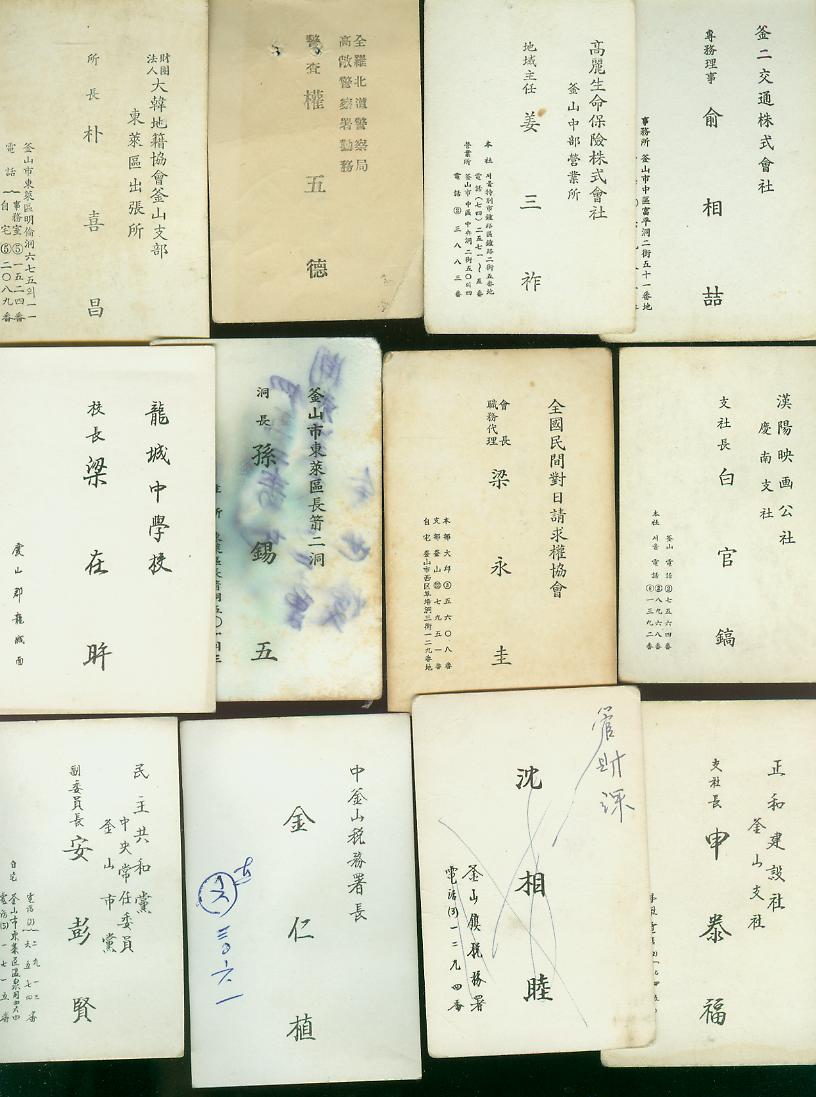 財團
法人 大韓地籍協會釜山支部
東萊區出張所
所長 朴喜昌
釜山市東萊區明倫洞六七五의一一
電話 事務室⑤一五二四番
自宅⑤二〇八九番
全羅北道警察局
高敞警察署勤務
警査 權五德
高麗生命保險株式會社
釜山中部營業所
地域主任 姜三祚
本社 서울特別市鍾路區鍾路二街五番地
電話(七四)二五七一~五番
營業所 釜山市中區中央洞二街五〇의四
電話②三八八三番
釜二交通株式會社
專務理事 俞相喆
事務所 釜山市中區富平洞二街五十一番地
龍城中學校
校長 梁在旿
龍城面
釜山市東萊區長箭二洞
洞長 孫錫五
全國民間對日請求權協會
會長
職務代理 梁永圭
本部 大邱③五六〇八番
支部 釜山⑳七九五一番
自宅 釜山市西区草場洞三街一二九番地
漢陽映画公社
慶南支社
支社長 白官鎬
釜山電話②七五六四番
②八九六八番
本社 서울 電話④一三九二番
民主共和黨
中央常任委員
釜山市黨
副委員長 安彭賢
自宅 釜山市東萊区温泉洞
中釜山税務署長
金仁植
管財課
沈相睦
釜山鎭税務署
電話(3)一二九四番
正和建設社
釜山支社
支社長 申泰福